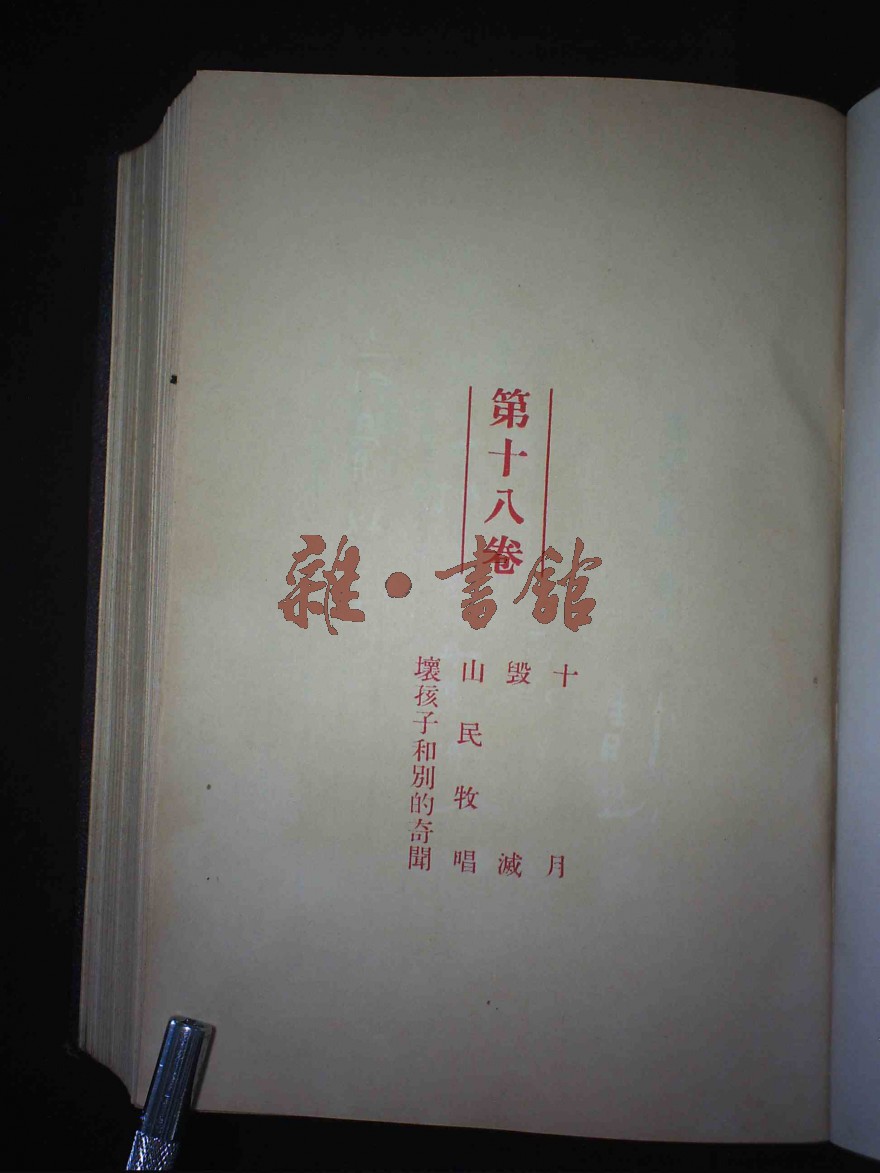 第十八卷
十月
毀滅
山民牧唱
壞孩子和別的奇聞
雜·書館